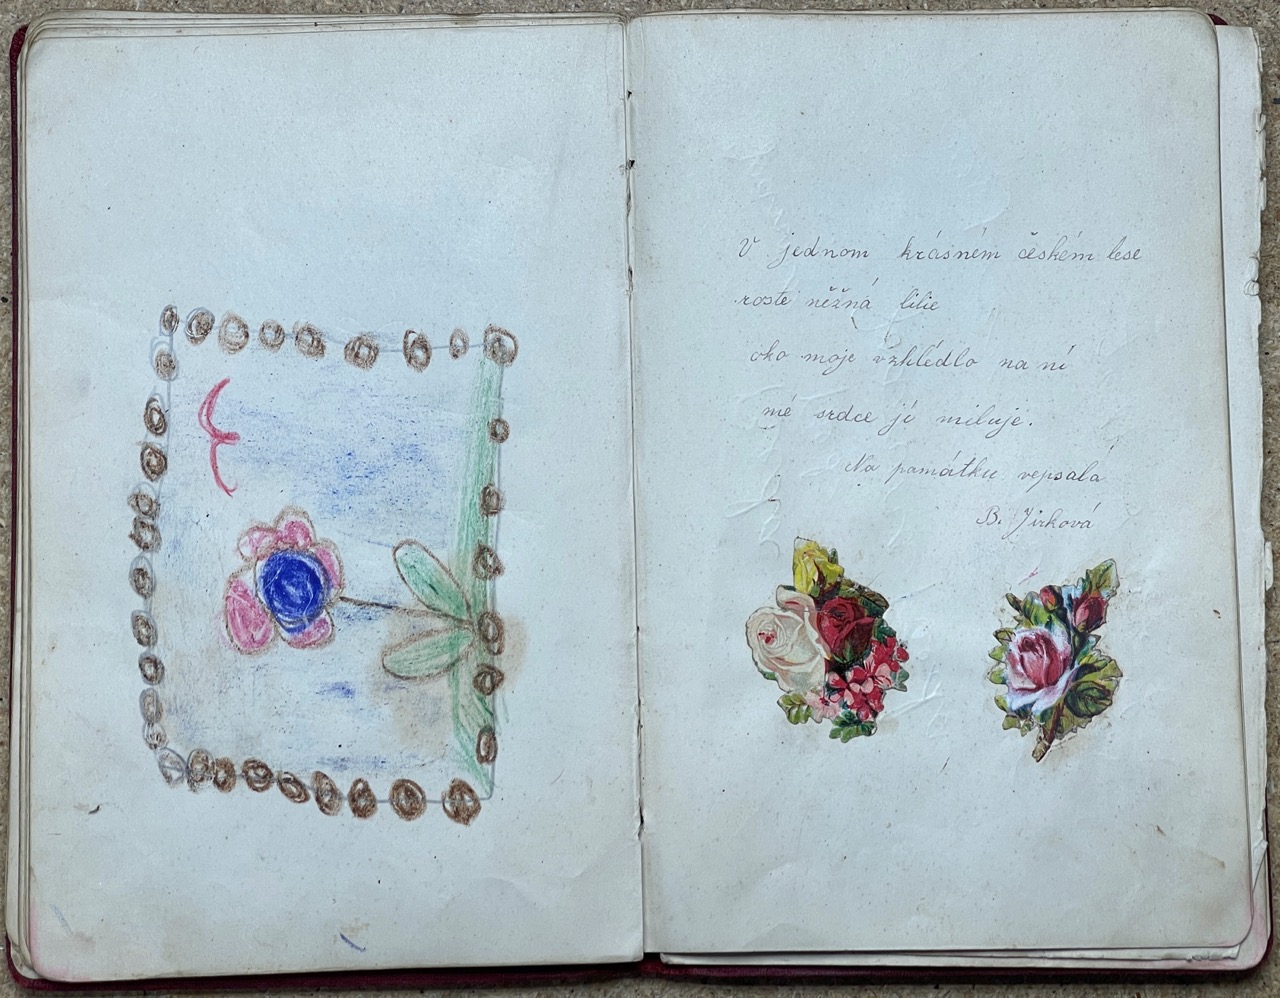 V jednom krásném českém lese
roste něžná lilie
oko moje vzhlédlo na ní
mé srdce jí miluje.
Na památku vepsala
B. Jirková